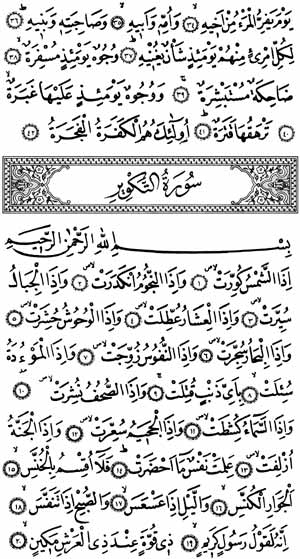 يَوْمَ يَفِرُّ الْمَرْءُ مِنْ أَخِيهِ ﴿٣٤﴾ وَأُمِّهِ وَأَبِيهِ ﴿٣٥﴾ وَصَاحِبَتِهِ وَبَنِيهِ ﴿٣٦﴾
لِكُلِّ امْرِئٍ مِنْهُمْ يَوْمَئِذٍ شَأْنٌ يُغْنِيهِ ﴿٣٧﴾ وُجُوهٌ يَوْمَئِذٍ مُسْفِرَةٌ ﴿٣٨﴾
ضَاحِكَةٌ مُسْتَبْشِرَةٌ ﴿٣٩﴾ وَوُجُوهٌ يَوْمَئِذٍ عَلَيْهَا غَبَرَةٌ
﴿٤٠﴾ تَرْهَقُهَا قَتَرَةٌ ﴿٤١﴾ أُولَٰئِكَ هُمُ الْكَفَرَةُ الْفَجَرَةُ ﴿٤٢﴾
سُورَةُ التَّكْوِيرِ
بِسْمِ اللهِ الرَّحْمٰنِ الرَّحِيمِ
إِذَا الشَّمْسُ كُوِّرَتْ ﴿١﴾ وَإِذَا النُّجُومُ انْكَدَرَتْ ﴿٢﴾ وَإِذَا الْجِبَالُ
سُيِّرَتْ ﴿٣﴾ وَإِذَا الْعِشَارُ عُطِّلَتْ ﴿٤﴾ وَإِذَا الْوُحُوشُ حُشِرَتْ ﴿٥﴾
وَإِذَا الْبِحَارُ سُجِّرَتْ ﴿٦﴾ وَإِذَا النُّفُوسُ زُوِّجَتْ ﴿٧﴾ وَإِذَا الْمَوْءُودَةُ
سُئِلَتْ ﴿٨﴾ بِأَيِّ ذَنْبٍ قُتِلَتْ ﴿٩﴾ وَإِذَا الصُّحُفُ نُشِرَتْ ﴿١٠﴾
وَإِذَا السَّمَاءُ كُشِطَتْ ﴿١١﴾ وَإِذَا الْجَحِيمُ سُعِّرَتْ ﴿١٢﴾ وَإِذَا الْجَنَّةُ
أُزْلِفَتْ ﴿١٣﴾ عَلِمَتْ نَفْسٌ مَا أَحْضَرَتْ ﴿١٤﴾ فَلَا أُقْسِمُ بِالْخُنَّسِ ﴿١٥﴾
الْجَوَارِ الْكُنَّسِ ﴿١٦﴾ وَاللَّيْلِ إِذَا عَسْعَسَ ﴿١٧﴾ وَالصُّبْحِ إِذَا تَنَفَّسَ ﴿١٨﴾
إِنَّهُ لَقَوْلُ رَسُولٍ كَرِيمٍ ﴿١٩﴾ ذِي قُوَّةٍ عِنْدَ ذِي الْعَرْشِ مَكِينٍ ﴿٢٠﴾